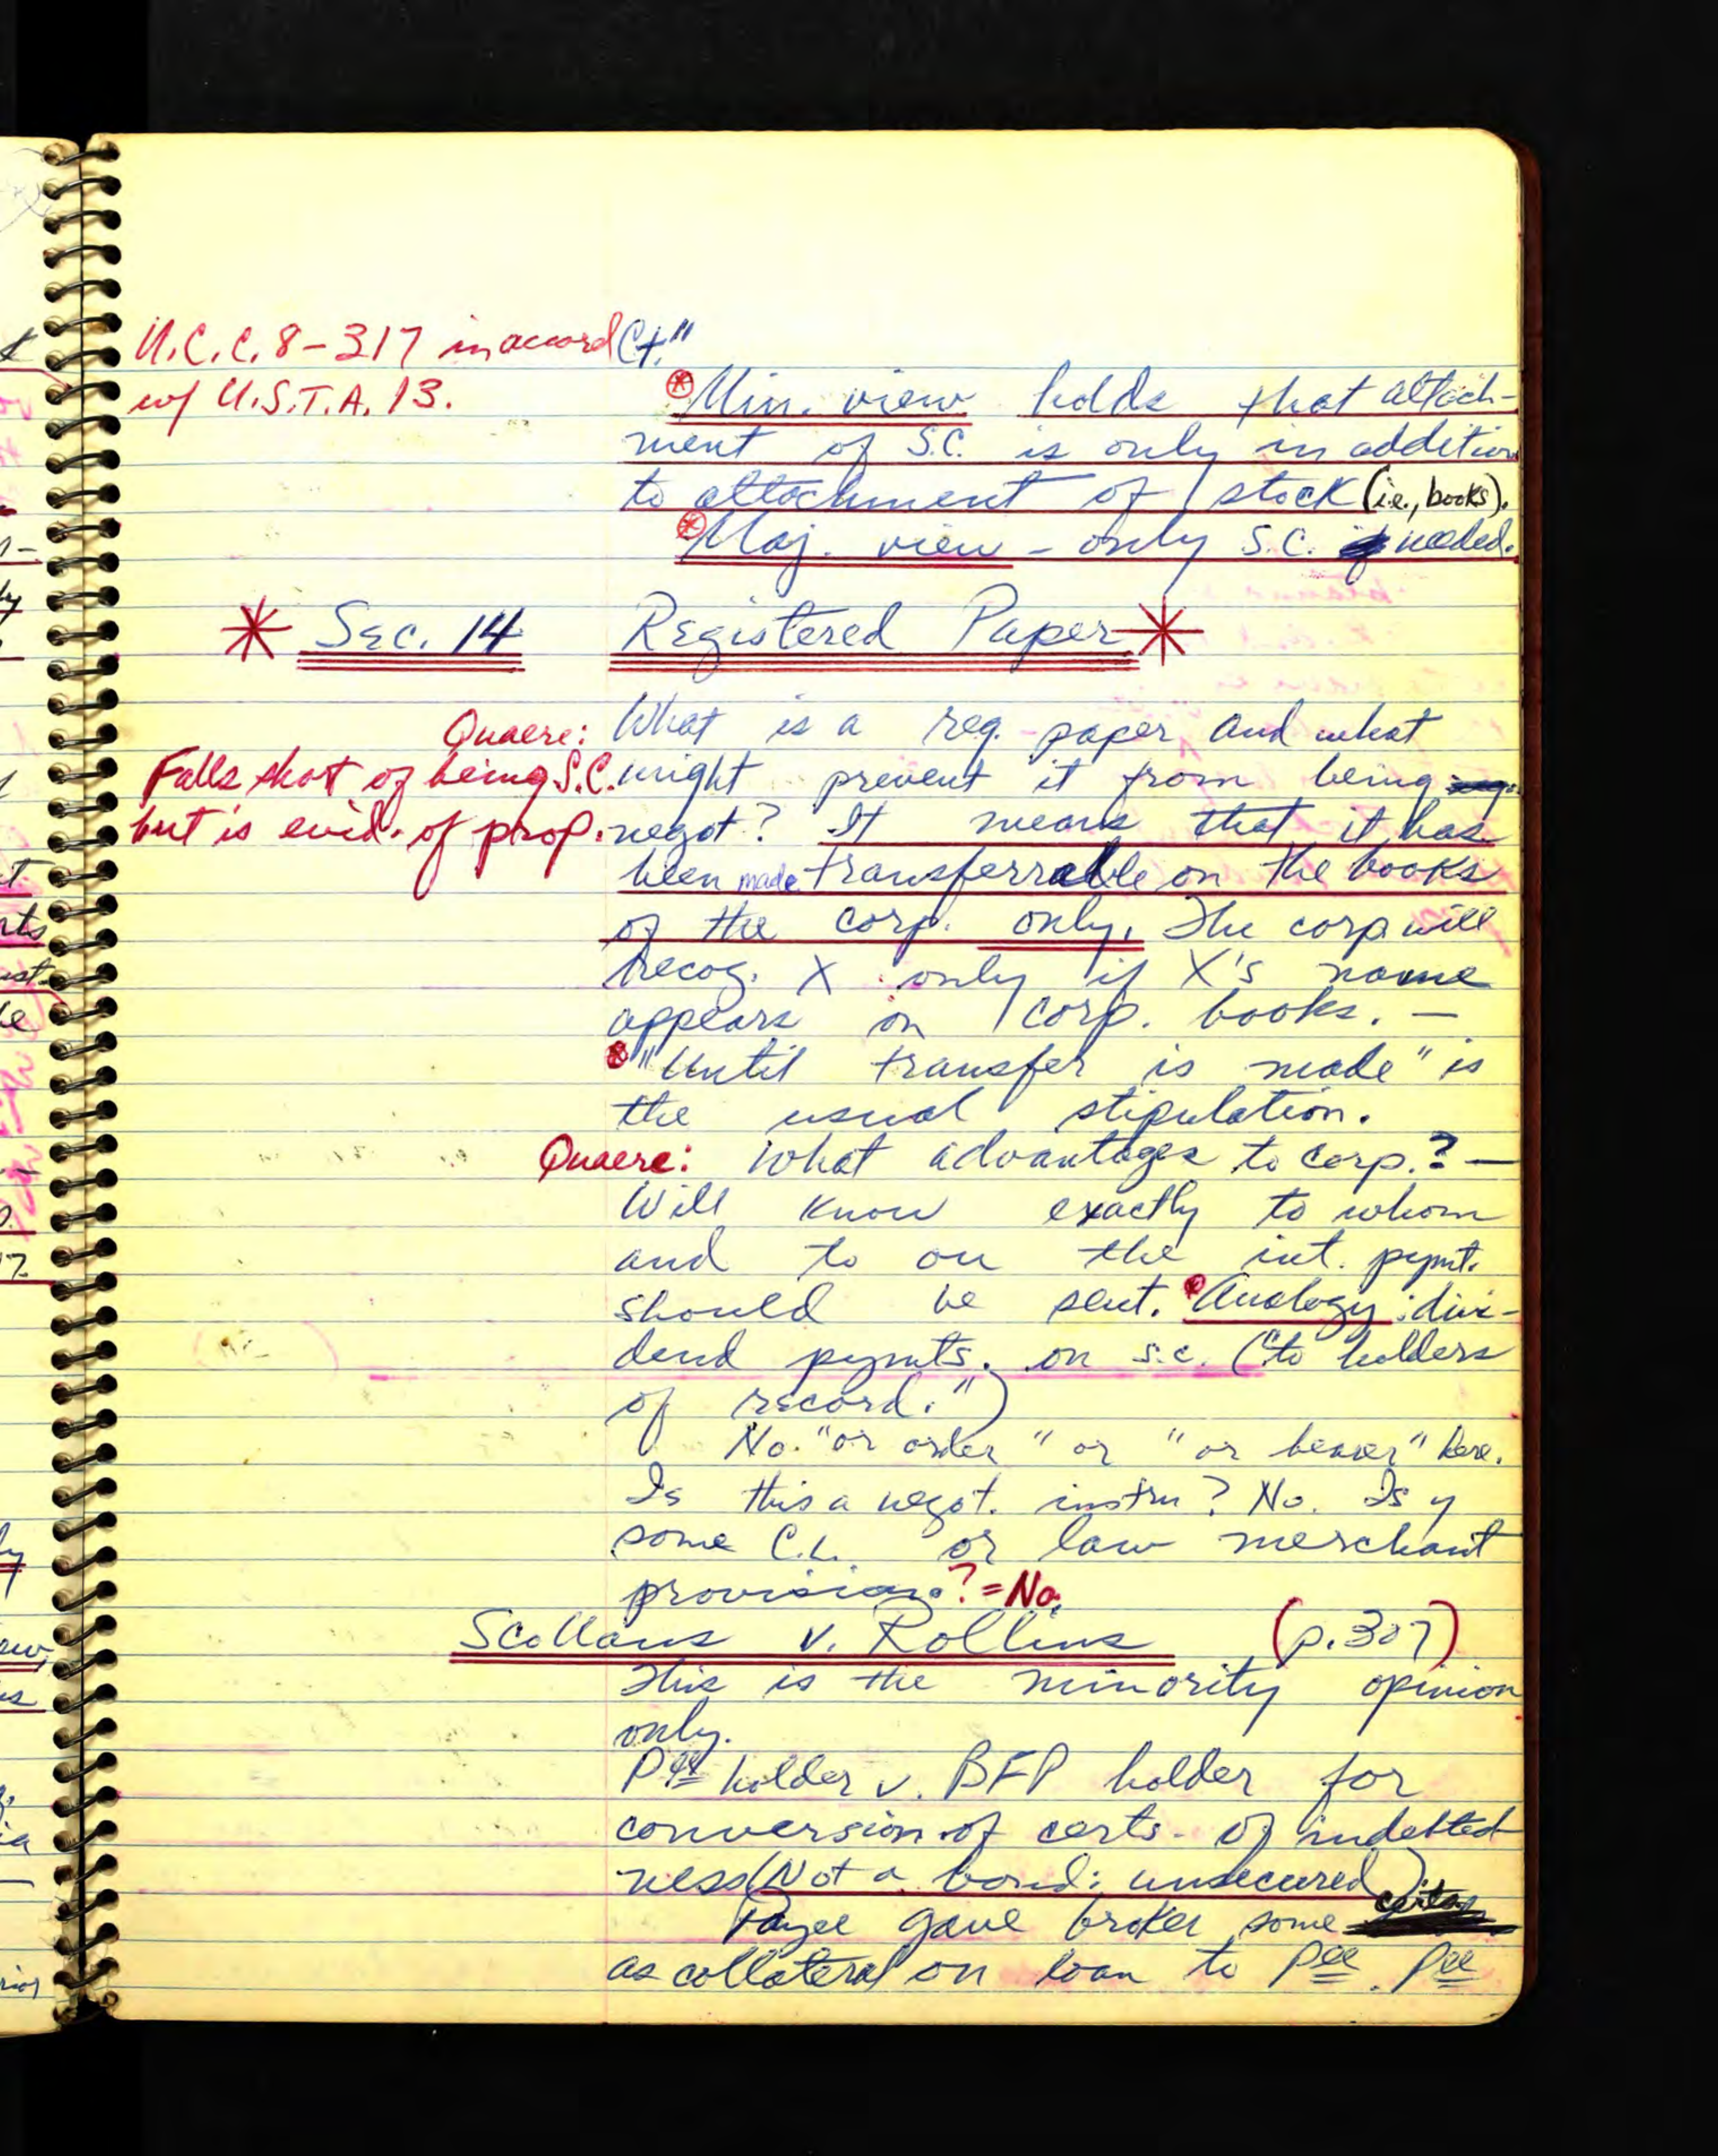 U.C.C. 8-317 in accord Ct."
w/ U.S.T.A. 13.
Min. view holds that attach-
ment of S.C. is only in addition
to attachment of stock (i.e., books).
Maj. view - only S.C. needed.
* Sec. 14 Registered Paper *
Quaere: What is a reg. paper and what
Falls short of being S.C. might prevent it from being
but is evid. of prop. negot? It means that it has
been made transferrable on the books
of the corp. only. The corp will
recog. X only if X's name
appears on corp. books. —
"Until transfer is made" is
the usual stipulation.
Quaere: What advantages to corp.? —
Will know exactly to whom
and to on the int. pymt.
should be sent. Analogy: divi-
dend pymts. on s.c. ("to holders
of record.")
No. "or order" or "or bearer" here.
Is this a negot. instru? No. Is y
some C.L. or law merchant
provision? = No.
Scollans v. Rollins (p.307)
This is the minority opinion
only.
Pee holder v. BFP holder for
conversion of certs. of indebted
ness (Not a bond: unsecured)
Payee gave broker some certs
as collateral on loan to Pee. Pee